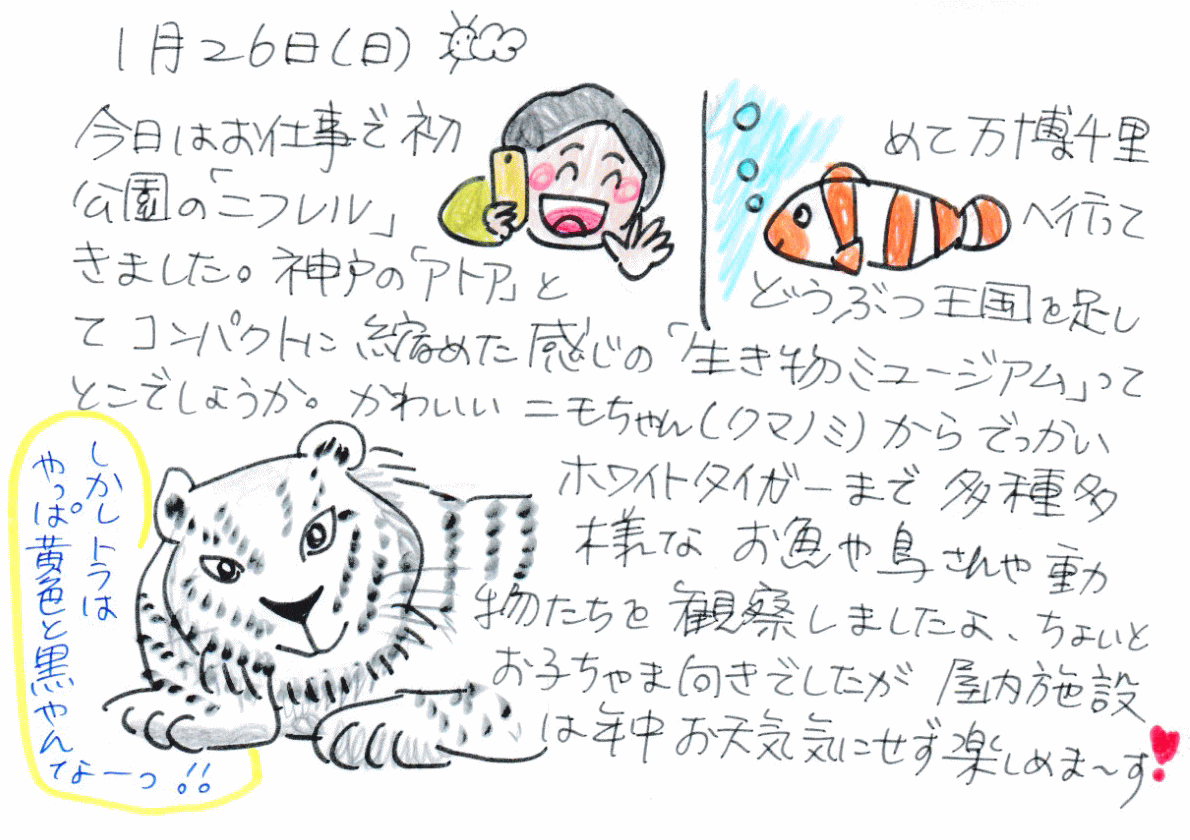 1月26日(日)
今日はお仕事で初めて万博千里
公園の「ニフレル」へ行って
きました。神戸の「アトア」とどうぶつ王国を足し
てコンパクトに縮めた感じの「生き物ミュージアム」って
とこでしょうか。かわいいニモちゃん(クマノミ)からでっかい
ホワイトタイガーまで多種多
様なお魚や鳥さんや動
物たちを観察しましたよ、ちょいと
お子ちゃま向きでしたが屋内施設
は年中お天気気にせず楽しめま～す!
しかしトラは
やっぱ黄色と黒やん
てなーっ!!